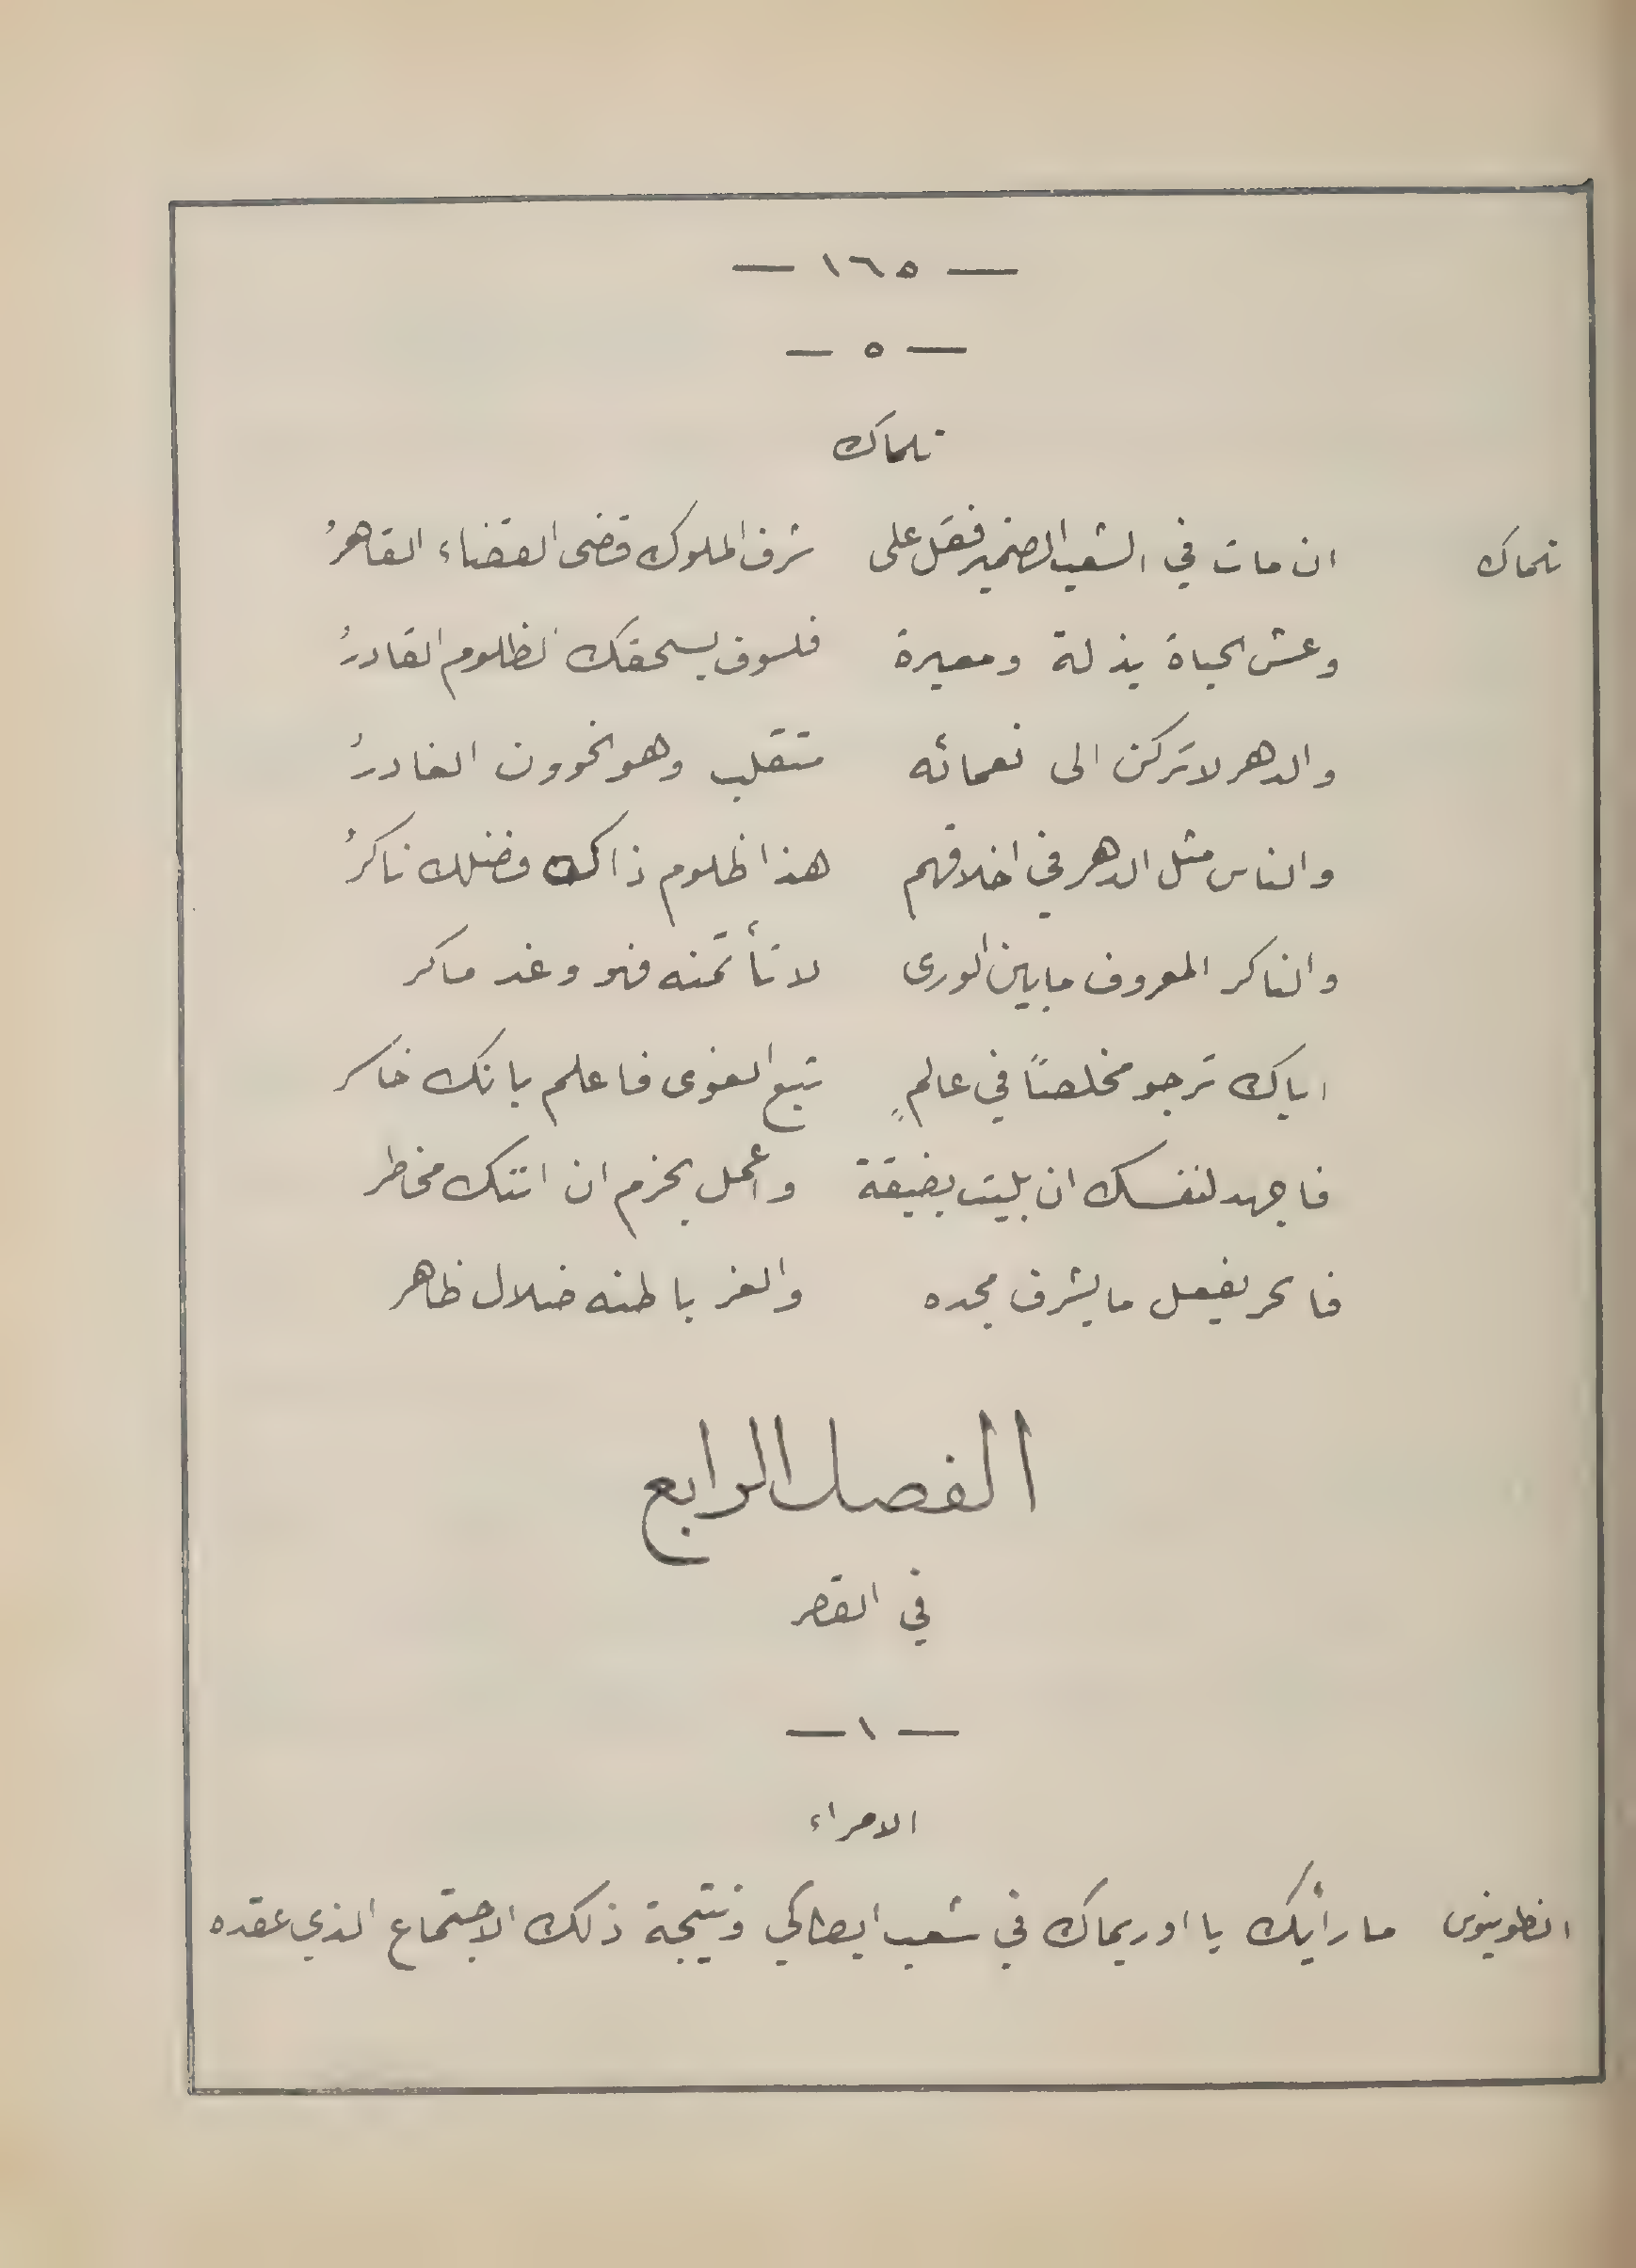 — ١٦٥ —
— ٥ —
تلماك
تلماك ان مات في الشعب الضمير فقل على شرف الملوك قضى القضاء القاهرُ
وعش الحياة بذلة ومعيرة فلسوف يسحقك الظلوم القادرُ
والدهر لا تركن الى نعمائه متقلب وهو الخوون الغادرُ
والناس مثل الدهر في اخلاقهم هذا ظلوم ذاك فضلك ناكرُ
والناكر المعروف ما بين الورى لا تأتمنه فهو وغد ماكر
اياك ترجو مخلصاً في عالمٍ تبع الغوى فاعلم بانك خاسر
فاجهد لنفسك ان بليت بضيقة واعمل بحزم ان اتتك مخاطر
فالحر يفعل ما يشرف مجده والغر باطنه ضلال ظاهر
الفصل الرابع
في القصر
— ١ —
الامراء
انطوينوس ما رأيك يا اوريماك في شعب ايطاكي ونتيجة ذلك الاجتماع الذي عقده